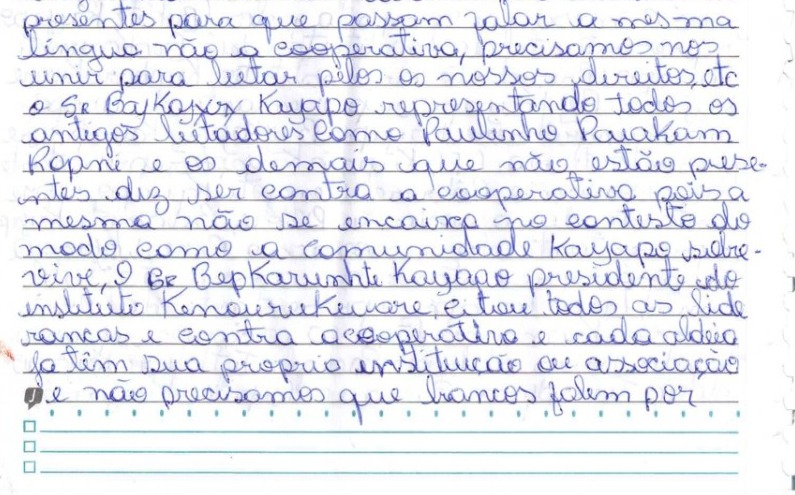 presentes para que possam falar a mesma
língua não a cooperativa, precisamos nos
unir para lutar pelos os nossos direitos, etc
o Sr Kayapo representando todos os
antigos lutadores como Paulinho Paiakam
Ropni e os demais que não estão prese-
ntes diz ser contra a cooperativa pois a
mesma não se encaixa no contesto do
modo como a comunidade Kayapo sobre-
vive, O Sr Kayapo presidente do
instituto citou todos as lide
rancas e contra acooperativa e cada aldeia
ja têm sua propria instituicão ou associação
e não precisamos que brancos falem por